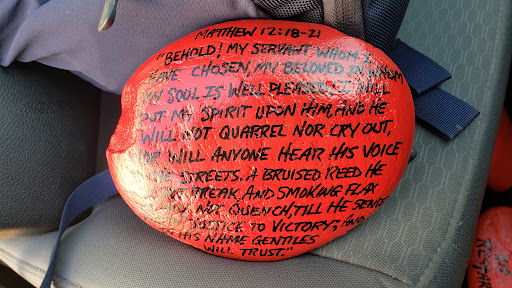 MATTHEW 12:18-21
"BEHOLD! MY SERVANT WHOM I
HAVE CHOSEN, MY BELOVED IN WHOM
MY SOUL IS WELL PLEASED. I WILL
PUT MY SPIRIT UPON HIM, AND HE
WILL NOT QUARREL NOR CRY OUT,
NOR WILL ANYONE HEAR HIS VOICE
THE STREETS. A BRUISED REED HE
NOT BREAK, AND SMOKING FLAX
NOT QUENCH, TILL HE SENDS
JUSTICE TO VICTORY; AND
HIS NAME GENTILES
WILL TRUST."